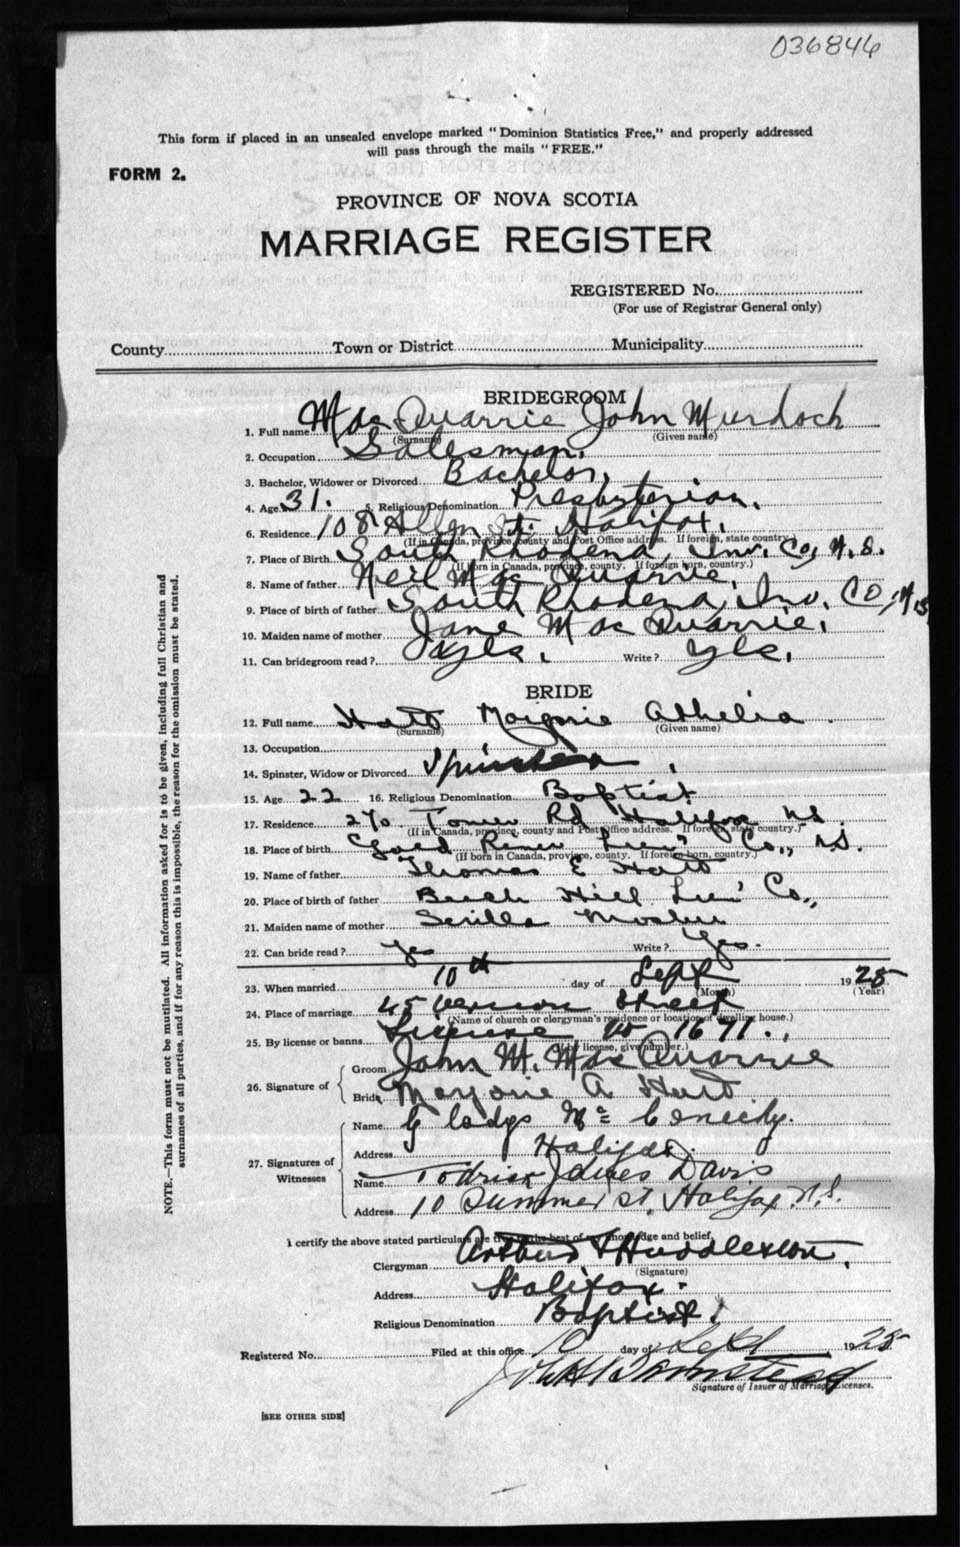 036846
This form if placed in an unsealed envelope marked "Dominion Statistics Free," and properly addressed
will pass through the mails "FREE."
FORM 2.
PROVINCE OF NOVA SCOTIA
MARRIAGE REGISTER
REGISTERED No.
(For use of Registrar General only)
County Town or District Municipality
BRIDEGROOM
1. Full name Mac Quarrie John Murdoch
(Surname) (Given name)
2. Occupation Salesman.
3. Bachelor, Widower or Divorced Bachelor,
4. Age 31. 5. Religious Denomination Presbyterian.
6. Residence 108 Allen St. Halifax.
(If in Canada, province, county and Post Office address. If foreign, state country.)
7. Place of Birth South Rhodena, Inv. Co, N.S.
(If born in Canada, province, county. If foreign born, country.)
8. Name of father Neil Mac Quarrie,
9. Place of birth of father South Rhodena, Inv. CO, N.S
10. Maiden name of mother Jane Mac Quarrie,
11. Can bridegroom read? yes. Write? yes.
BRIDE
12. Full name Hatt Marjorie Athelia
(Surname) (Given name)
13. Occupation
14. Spinster, Widow or Divorced Spinster
15. Age 22 16. Religious Denomination Baptist
17. Residence 270 Tower Rd Halifax NS.
(If in Canada, province, county and Post Office address. If foreign, state country.)
18. Place of birth Gold River Lun' Co., N.S.
(If born in Canada, province, county. If foreign born, country.)
19. Name of father Thomas E Hatt
20. Place of birth of father Beech Hill Lun' Co.,
21. Maiden name of mother
22. Can bride read? Yes Write? Yes.
23. When married 10th day of Sept 1928
(Month) (Year)
24. Place of marriage 45 Vernon Street
(Name of church or clergyman's residence or location of dwelling house.)
25. By license or banns License No 1671.
(If by license, give number.)
26. Signature of
Groom John M. Mac Quarrie
Bride Marjorie A Hatt
27. Signatures of Witnesses
Name Gladys
Address Halifax.
Name James Davis
Address 10 Summer St. Halifax N.S.
I certify the above stated particulars are true to the best of my knowledge and belief.
Clergyman Arthur Huddleston,
(Signature)
Address Halifax.
Religious Denomination Baptist.
Registered No. Filed at this office 10 day of Sept 1928
Signature of Issuer of Marriage Licenses.
[SEE OTHER SIDE]
NOTE.—This form must not be mutilated. All information asked for is to be given, including full Christian and
surnames of all parties, and if for any reason this is impossible, the reason for the omission must be stated.